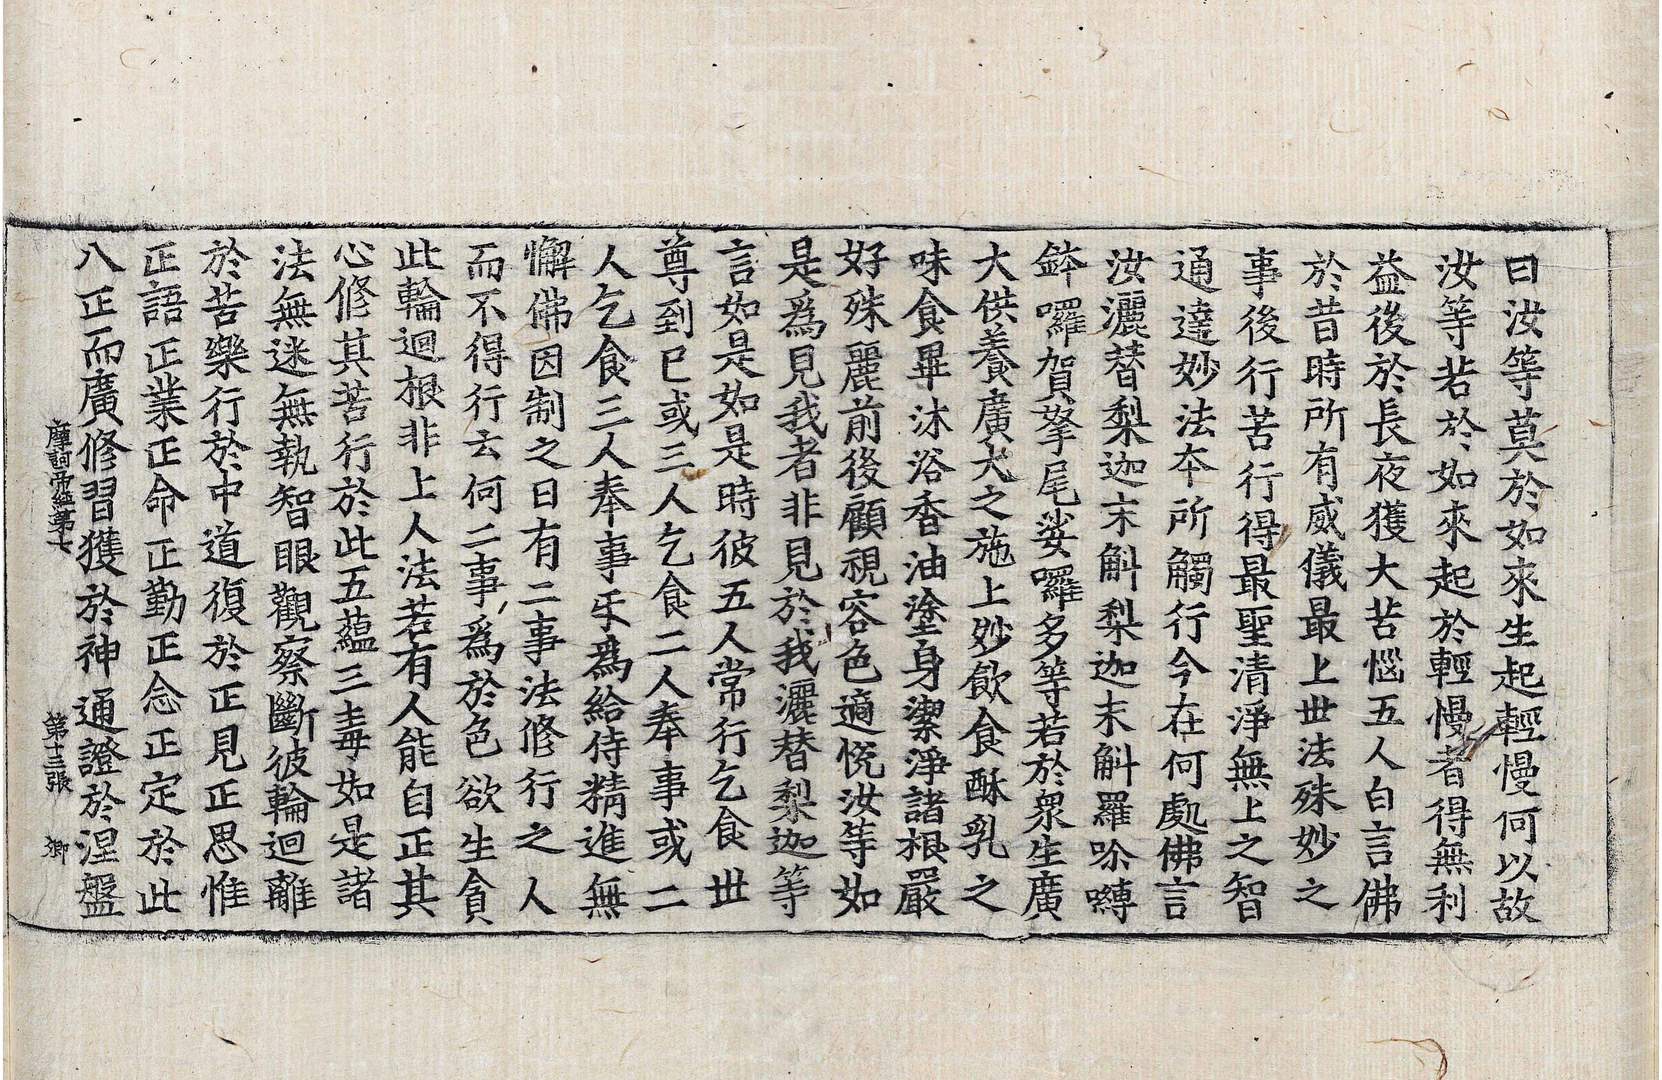 曰汝等莫於如來生起輕慢何以故
汝等若於如來起於輕慢者得無利
益後於長夜獲大苦惱五人白言佛
於昔時所有威儀最上世法殊妙之
事後行苦行得最聖清淨無上之智
通達妙法夲所觸行今在何處佛言
汝灑替梨迦末斛梨迦末斛羅唋嚩
鉢囉賀拏尾娑囉多等若於衆生廣
大供養廣大之施上妙飲食酥乳之
味食畢沐浴香油塗身潔淨諸根嚴
好殊麗前後顧視容色適悅汝等如
是爲見我者非見於我灑替梨迦等
言如是如是時彼五人常行乞食世
尊到已或三人乞食二人奉事或二
人乞食三人奉事乐爲給侍精進無
懈佛因制之曰有二事法修行之人
而不得行云何二事爲於色欲生貪
此輪迴根非上人法若有人能自正其
心修其苦行於此五蘊三毒如是諸
法無迷無執智眼觀察斷彼輪迴離
於苦樂行於中道復於正見正思惟
正語正業正命正勤正念正定於此
八正而廣修習獲於神通證於涅盤
摩訶帝經第七 第十三張 卿